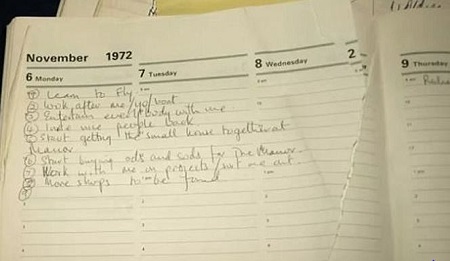 November 1972
6 Monday
7 Tuesday
8 Wednesday
2
9 Thursday
① Learn to Fly
② Look after me/yo/boat
③ Entertain everybody with me
④ nice people back
⑤ Start getting the small house together at
Manor
⑥ Start buying odds and sods for The Manor
⑦ Work with me on projects/sort me out
⑧ More shops to be found
⑨